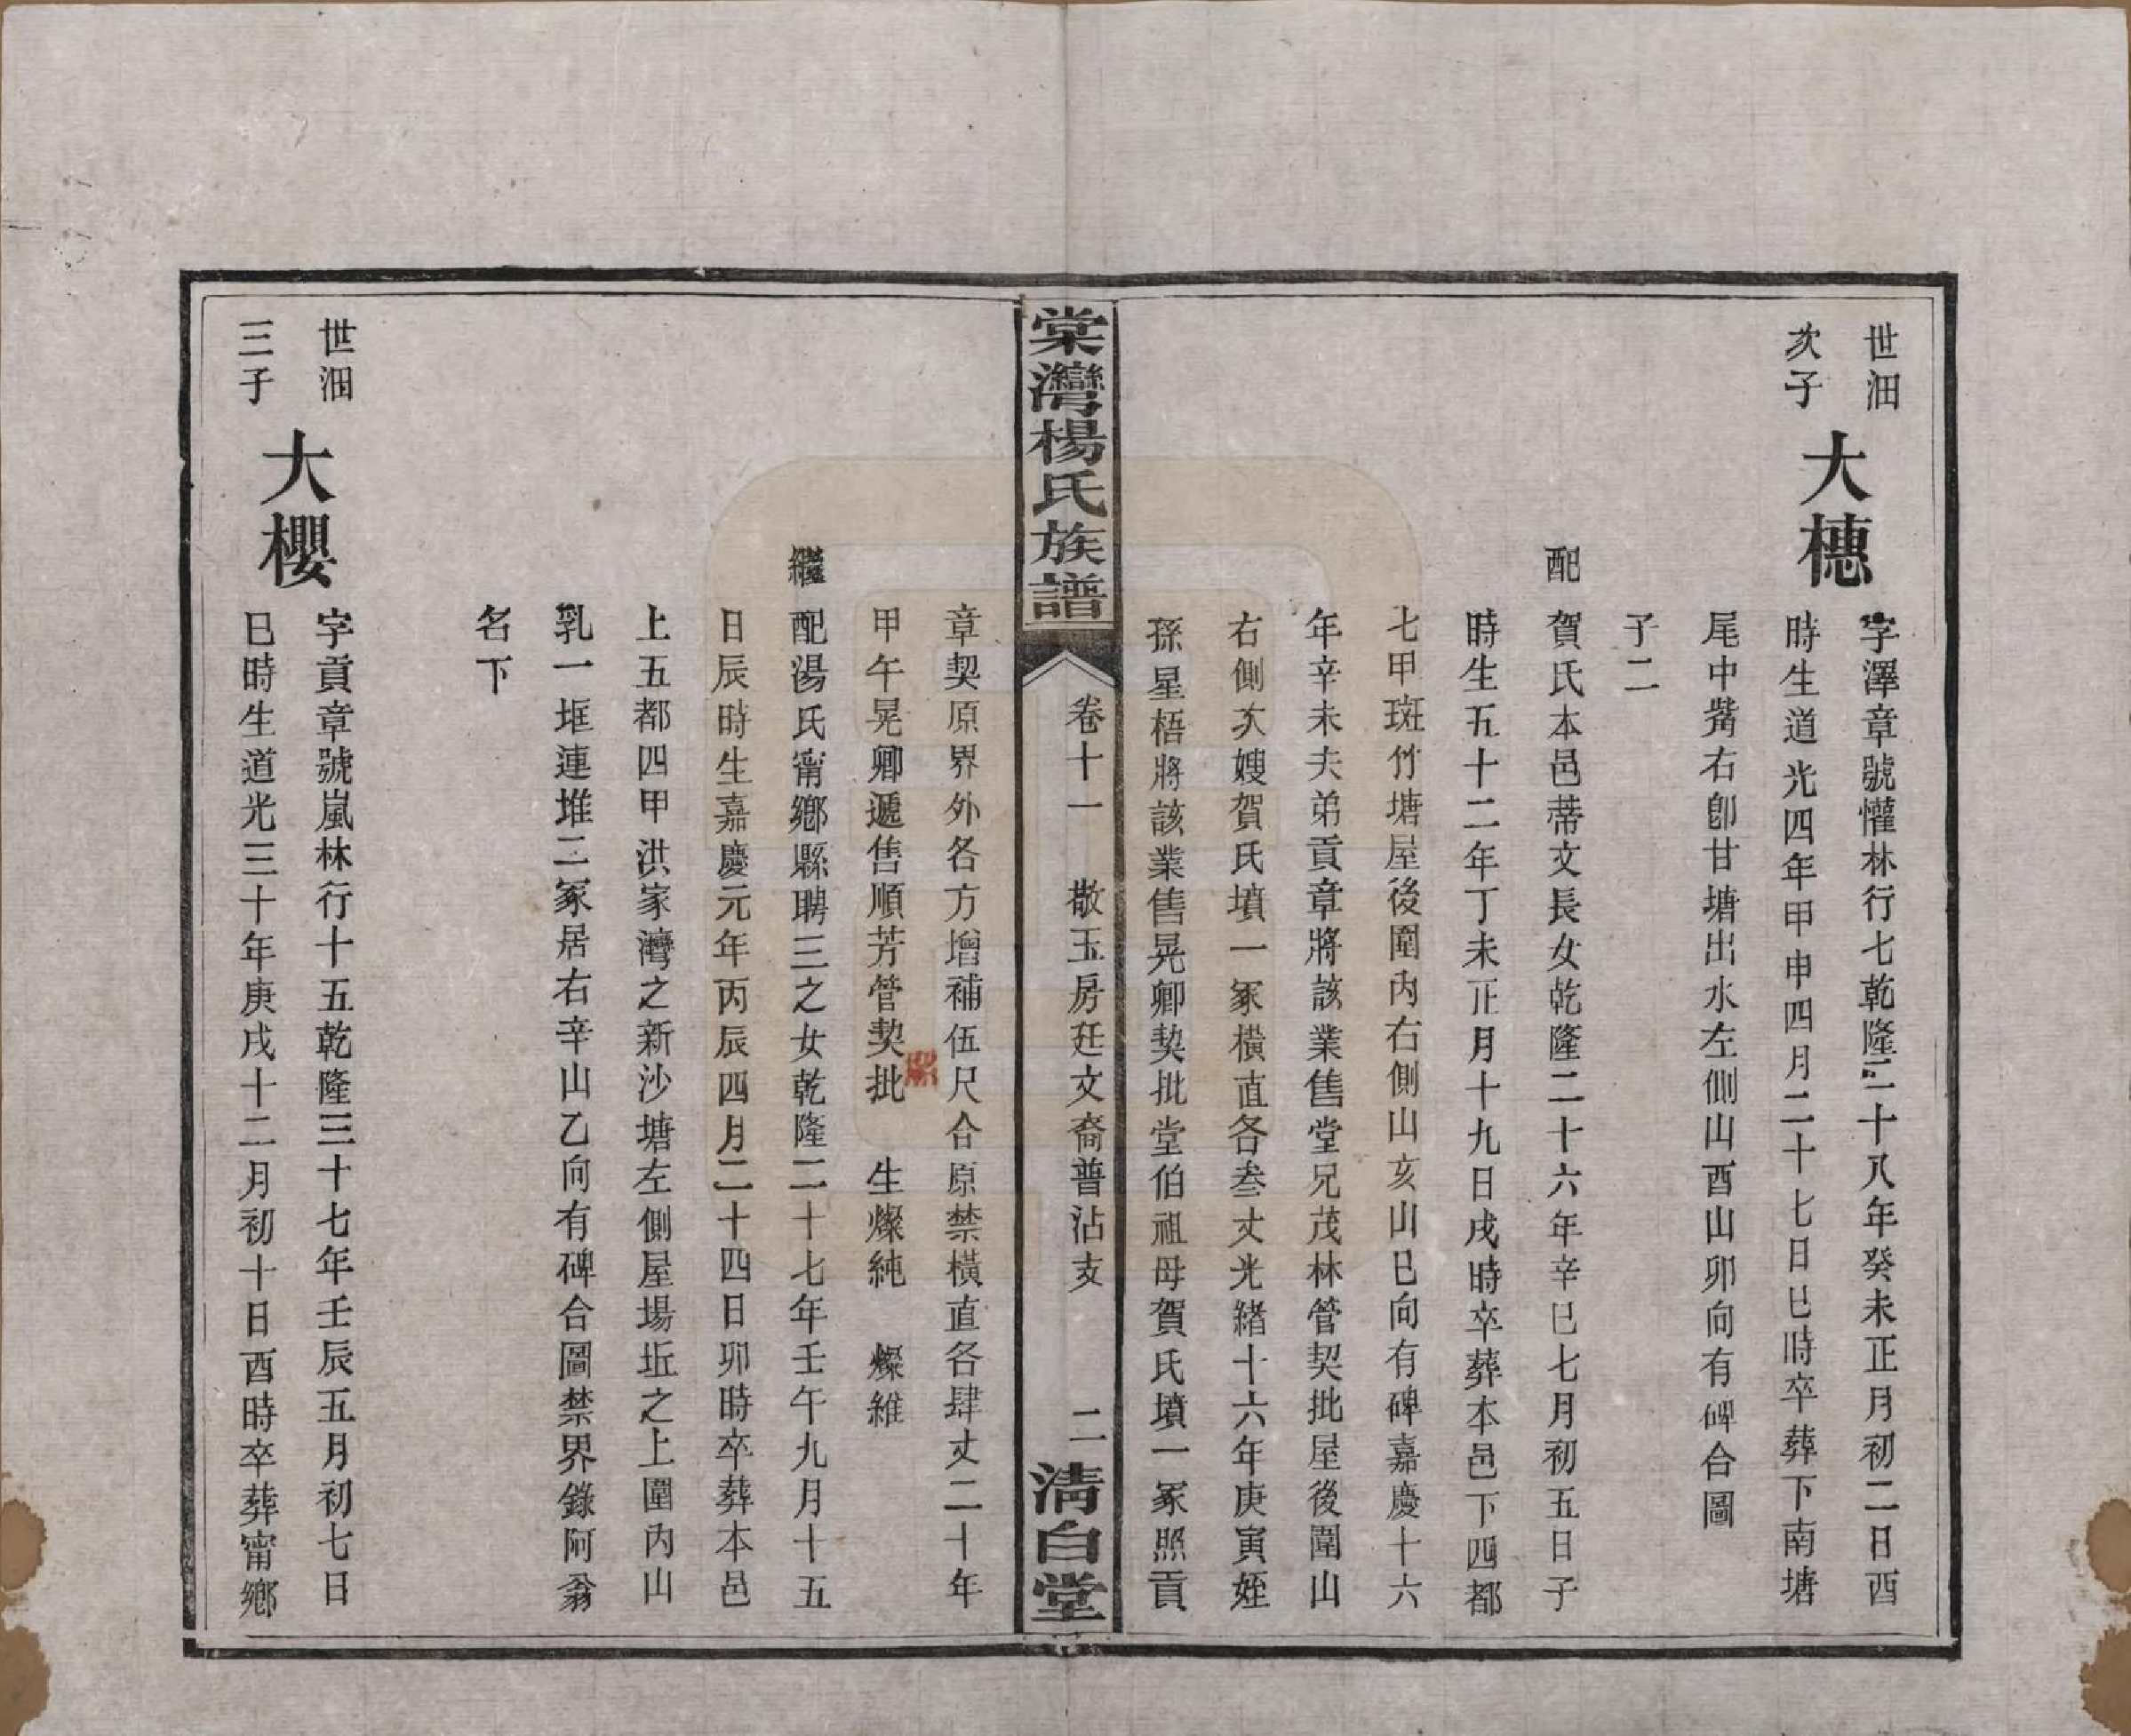 世沺
次子
大穗
字澤章號懽林行七乾隆二十八年癸未正月初二日酉
時生道光四年甲申四月二十七日巳時卒葬下南塘
尾中嘴右卽甘塘出水左側山酉山卯向有碑合圖
子二
配賀氏本邑蒂文長女乾隆二十六年辛巳七月初五日子
時生五十二年丁未正月十九日戌時卒葬本邑下四都
七甲斑竹塘屋後圍內右側山亥山巳向有碑嘉慶十六
年辛未夫弟貢章將該業售堂兄茂林管契批屋後圍山
右側次嫂賀氏墳一冢橫直各叁丈光緒十六年庚寅姪
孫星梧將該業售晃卿契批堂伯祖母賀氏墳一冢照貢
棠灣楊氏族譜
卷十一 散玉房廷文裔普沾支 二
清白堂
章契原界外各方增補伍尺合原禁橫直各肆丈二十年
甲午晃卿遞售順芳管契批 生燦純 燦維
繼配湯氏甯鄉縣聘三之女乾隆二十七年壬午九月十五
日辰時生嘉慶元年丙辰四月二十四日卯時卒葬本邑
上五都四甲洪家灣之新沙塘左側屋場坵之上圍內山
乳一堆連堆二冢居右辛山乙向有碑合圖禁界錄阿翁
名下
世沺
三子
大櫻
字貢章號嵐林行十五乾隆三十七年壬辰五月初七日
巳時生道光三十年庚戌十二月初十日酉時卒葬甯鄉